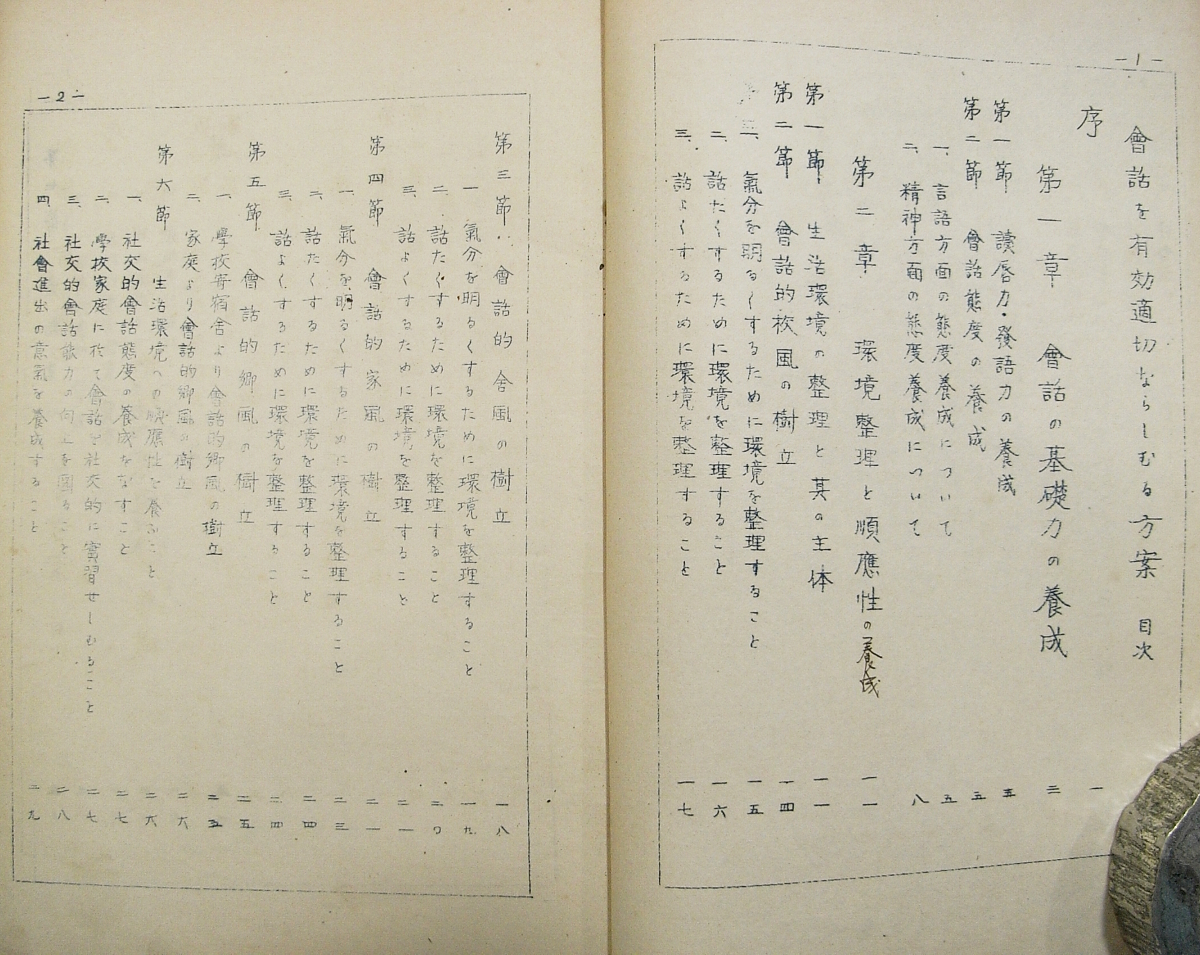 —1—
會話を有効適切ならしむる方案 目次
序 一
第一章 會話の基礎力の養成 三
第一節 讀唇力・發語力の養成 五
第二節 會話態度の養成 五
一、言語方面の態度養成について 五
二、精神方面の態度養成について 八
第二章 環境整理と順應性の養成 一一
第一節 生活環境の整理と其の主体 一一
第二節 會話的校風の樹立 一四
一、氣分を明るくするために環境を整理すること 一五
二、話たくするために環境を整理すること 一六
三、話よくするために環境を整理すること 一七
—2—
第三節 會話的舍風の樹立 一八
一、氣分を明るくするために環境を整理すること 一九
二、話たくするために環境を整理すること 二〇
三、話よくするために環境を整理すること 二一
第四節 會話的家風の樹立 二一
一、氣分を明るくするために環境を整理すること 二三
二、話たくするために環境を整理すること 二四
三、話よくするために環境を整理すること 二四
第五節 會話的鄉風の樹立 二五
一、學校寄宿舍より會話的鄉風の樹立 二五
二、家庭より會話的鄉風の樹立 二六
第六節 生活環境への順應性を養ふこと 二六
一、社交的會話態度の養成をなすこと 二七
二、學校家庭に於て會話を社交的に實習せしむること 二七
三、社交的會話能力の向上を圖ること 二八
四、社會進出の意氣を養成すること 二九